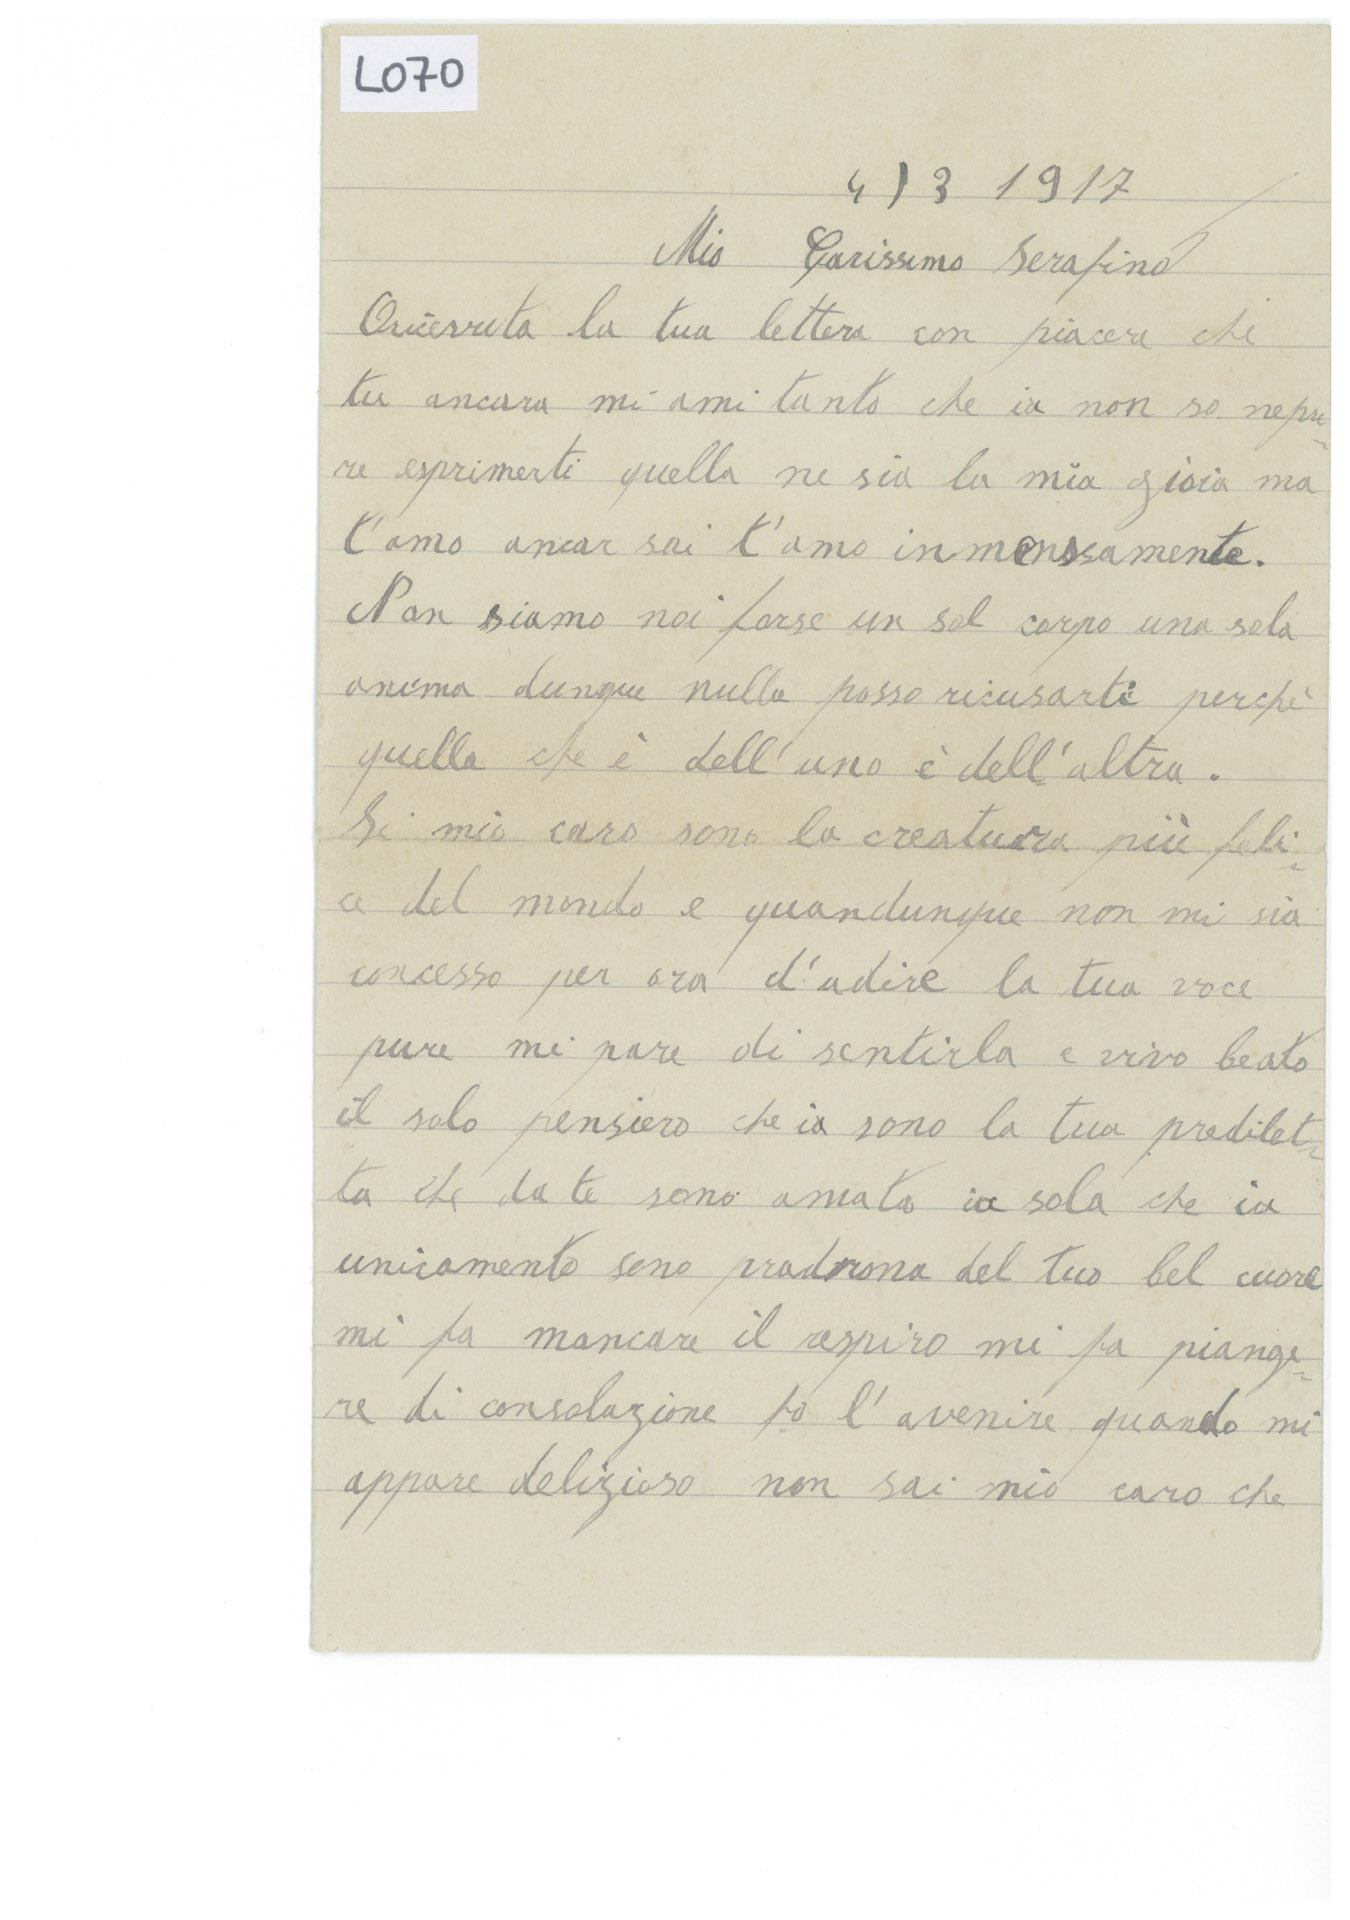 L070
4/3 1917
Mio Carissimo Serafino
la tua lettera con piacere che
tu ancora mi ami tanto che io non so nepu-
re esprimerti quella ne sia la mia gioia ma
t'amo ancor sai t'amo inmenssamente.
Non siamo noi forse un sol corpo una sola
anima dunque nulla posso ricusarti perchè
quello che è dell'uno è dell'altra.
Si mio caro sono la creatura più feli-
ce del mondo e quandunque non mi sia
concesso per ora d'udire la tua voce
pure mi pare di sentirla e vivo beato
il solo pensiero che io sono la tua predilet-
ta che da te sono amata io sola che io
unicamento sono pradrona del tuo bel cuore
mi fa mancare il respiro mi fa piange-
re di consolazione fo l'avenire quando mi
appare delizioso non sai mio caro che